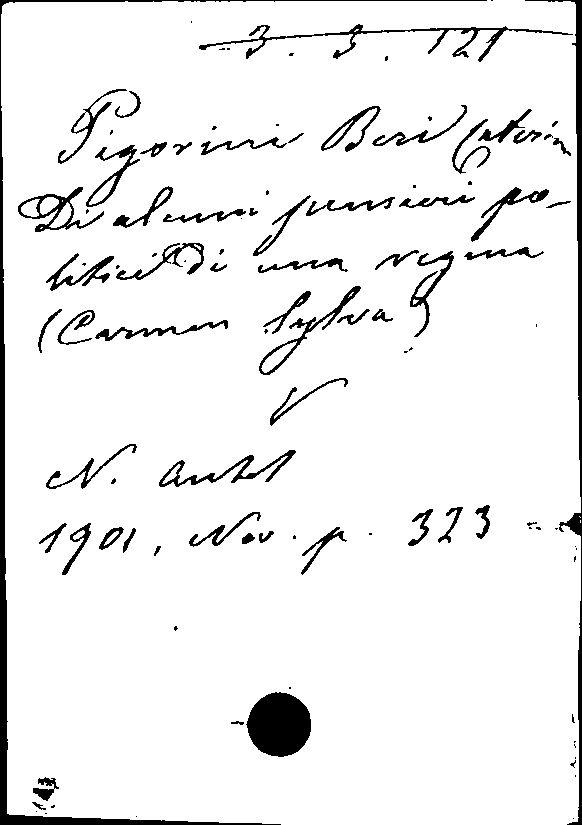 3. 3. 121
Pigorini Beri Caterin
Di alcuni pensieri po-
litici di una regina
(Carmen Sylva)
V
N. Antol
1901, Nov. p. 323